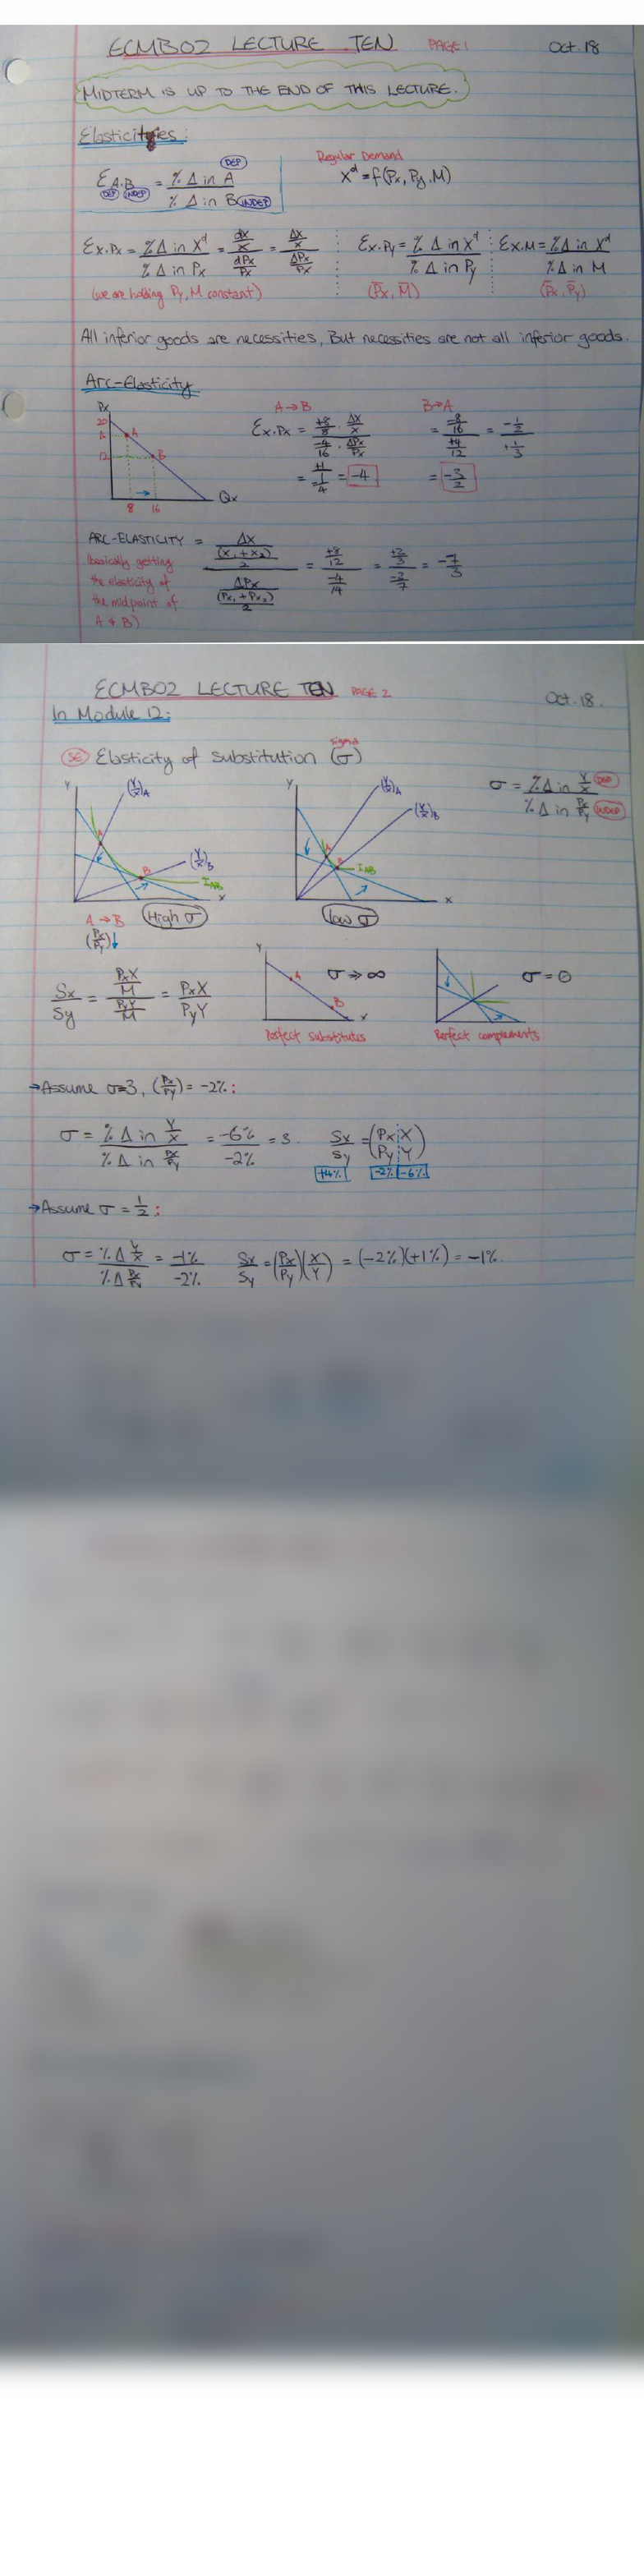 ECMB02 LECTURE TEN PAGE 1 Oct. 18
MIDTERM IS UP TO THE END OF THIS LECTURE.
Elasticities:
Regular Demand
Ɛ A.B = % Δ in A (DEP) / % Δ in B (INDEP)
(DEP) (INDEP)
Xᵈ = f(Px, Py, M)
Ɛx.Px = % Δ in Xᵈ / % Δ in Px = (dx/x) / (dPx/Px) = (Δx/x) / (ΔPx/Px)
Ɛx.Py = % Δ in Xᵈ / % Δ in Py
Ɛx.M = % Δ in Xᵈ / % Δ in M
(we are holding Py, M constant) (P̄x, M̄) (P̄x, P̄y)
All inferior goods are necessities, But necessities are not all inferior goods.
Arc-Elasticity
Px 20 16 12 A B 8 16 Qx
A → B
Ɛx.Px = (+8/8) / (-4/16) · (Δx/x) / (ΔPx/Px)
= +1 / -1/4 = -4
B → A
= (-8/16) / (+4/12) = (-1/2) / (+1/3)
= -3/2
ARC-ELASTICITY = (Δx / ((x₁ + x₂)/2)) / (ΔPx / ((Px₁ + Px₂)/2)) = (+8/12) / (-4/14) = (+2/3) / (-2/7) = -7/3
(basically getting
the elasticity of
the midpoint of
A & B)
ECMB02 LECTURE TEN PAGE 2 Oct. 18.
In Module 12:
sigma
(SE) Elasticity of Substitution (σ)
σ = % Δ in Y/X (DEP) / % Δ in Px/Py (INDEP)
Y (Y/X)A A (Y/X)B B IAB X
Y (Y/X)A (Y/X)B A B IAB X
A → B High σ Low σ
(Px/Py)↓
Sx/Sy = (PxX/M) / (PyY/M) = PxX/PyY
Y A B X σ → ∞ σ = 0
Perfect substitutes Perfect complements
→Assume σ=3, (Px/Py) = -2%:
σ = % Δ in Y/X / % Δ in Px/Py = -6% / -2% = 3
Sx/Sy = (Px X / Py Y)
+4% -2% -6%
→Assume σ = 1/2:
σ = % Δ Y/X / % Δ Px/Py = -1% / -2%
Sx/Sy = (Px/Py)(X/Y) = (-2%)(+1%) = -1%.